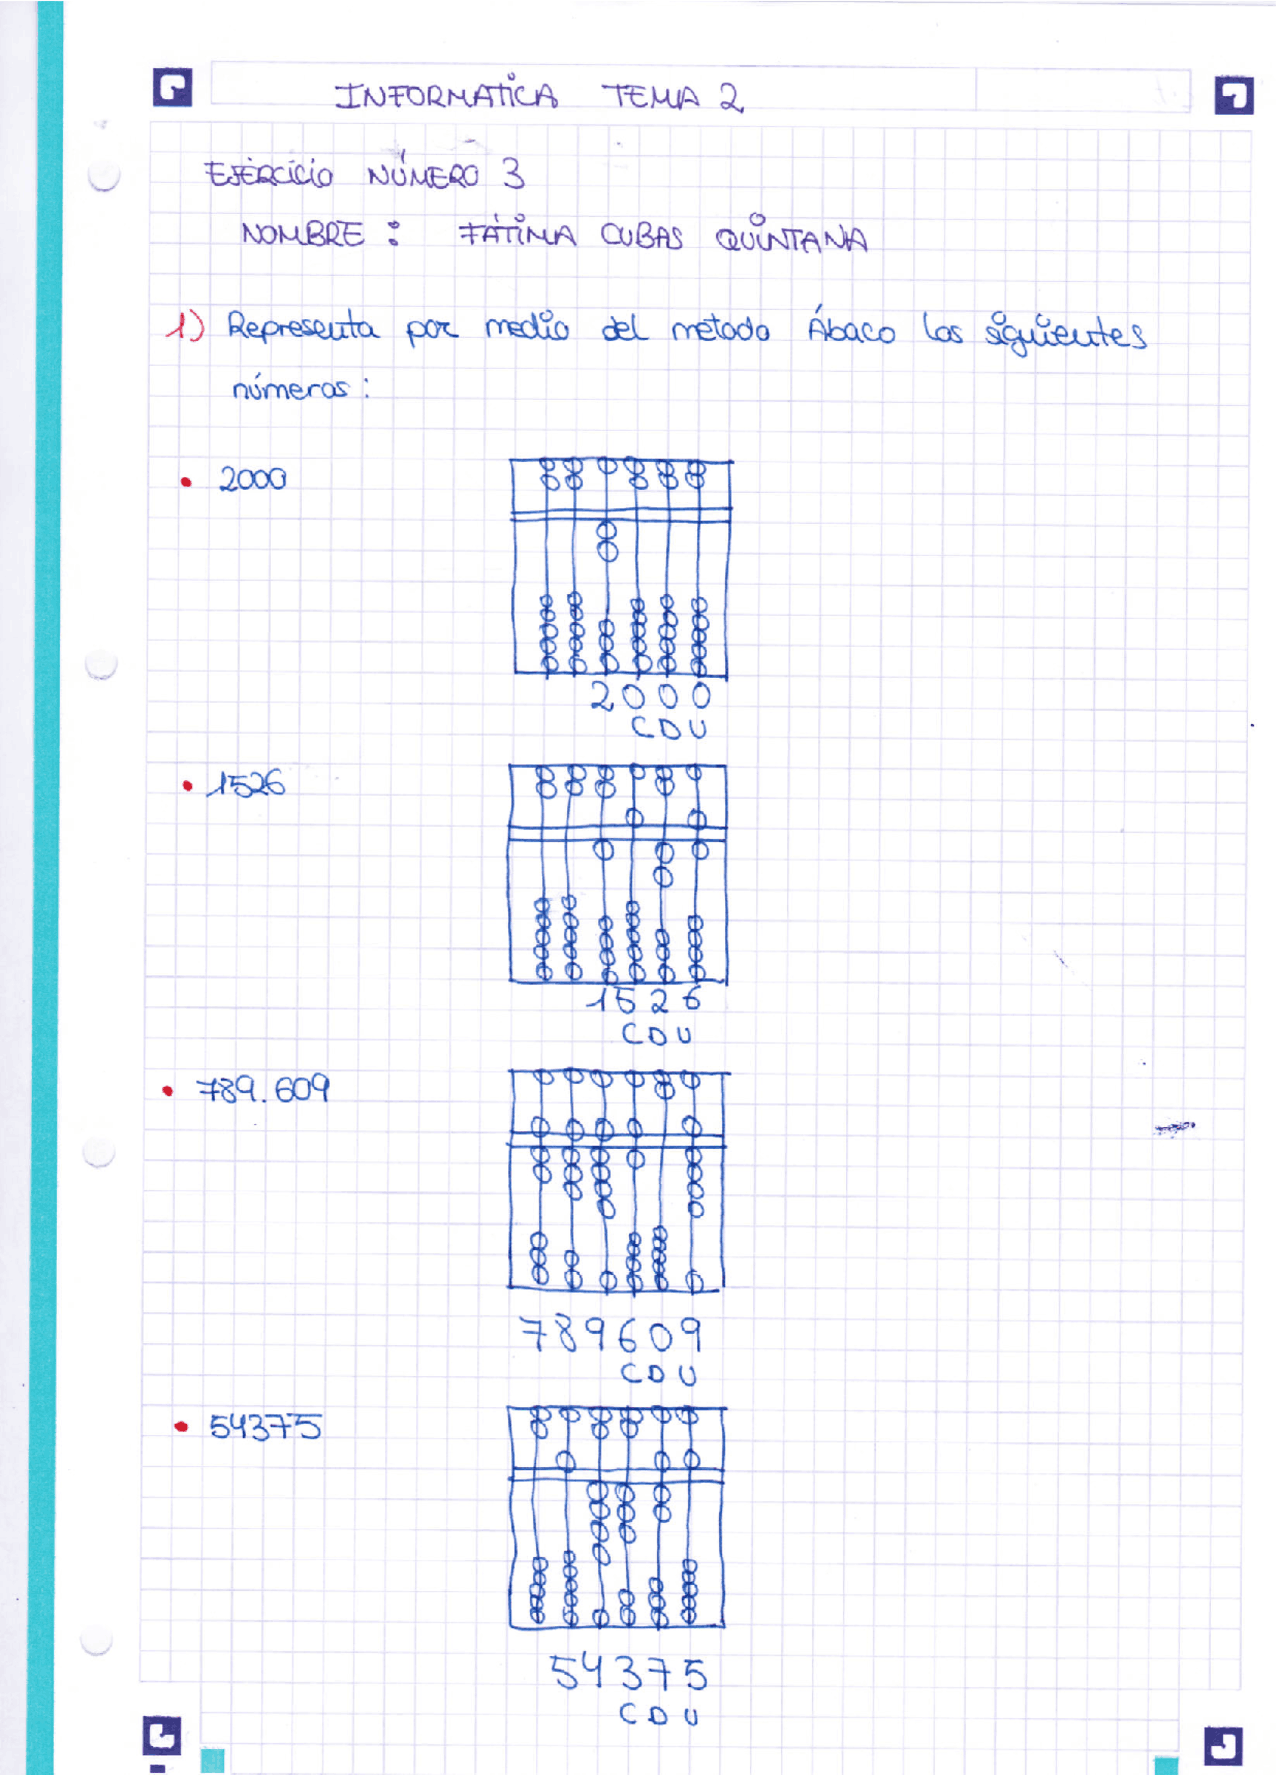 INFORMATICA TEMA 2
EJERCICIO NÚMERO 3
NOMBRE : FÁTIMA CUBAS QUINTANA
1) Representa por medio del metodo Ábaco los siguientes
números:
• 2000
2000
C D U
• 1526
1526
C D U
• 789.609
789609
C D U
• 54375
54375
C D U